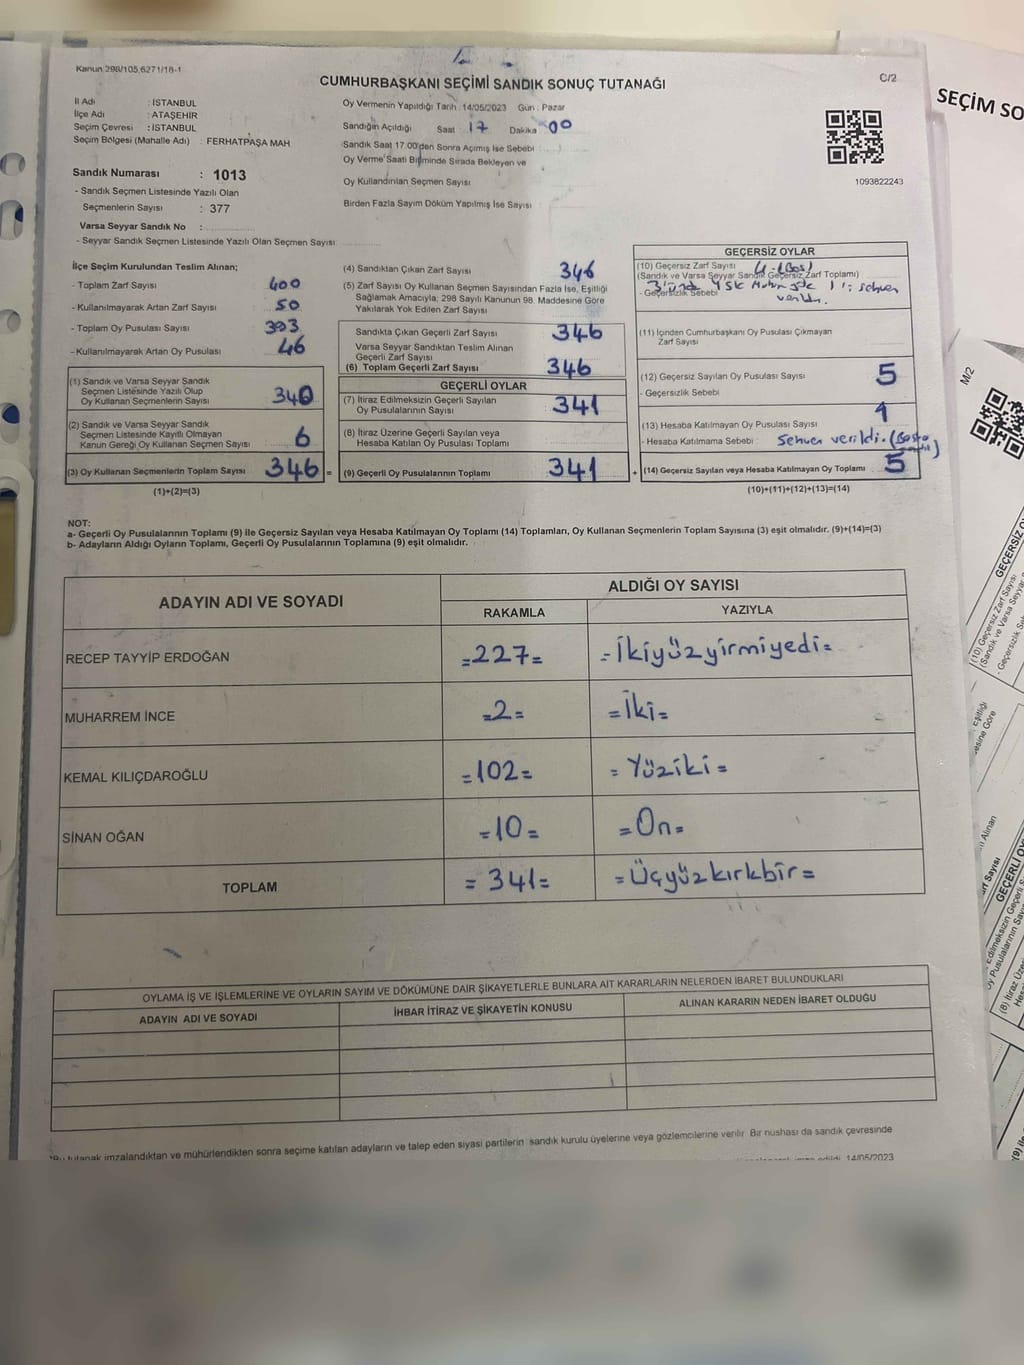 Kanun 298/105,6271/18-1
CUMHURBAŞKANI SEÇİMİ SANDIK SONUÇ TUTANAĞI
C/2
SEÇİM SO
İl Adı : İSTANBUL
İlçe Adı : ATAŞEHİR
Seçim Çevresi : İSTANBUL
Seçim Bölgesi (Mahalle Adı) : FERHATPAŞA MAH
Oy Vermenin Yapıldığı Tarih : 14/05/2023 Gün : Pazar
Sandığın Açıldığı Saat 17 Dakika 00
Sandık Saat 17:00'den Sonra Açımış İse Sebebi
Oy Verme Saati Bitiminde Sırada Bekleyen ve
Oy Kullandırılan Seçmen Sayısı
Birden Fazla Sayım Döküm Yapılmış İse Sayısı
1093822243
Sandık Numarası : 1013
- Sandık Seçmen Listesinde Yazılı Olan
Seçmenlerin Sayısı : 377
Varsa Seyyar Sandık No :
- Seyyar Sandık Seçmen Listesinde Yazılı Olan Seçmen Sayısı
İlçe Seçim Kurulundan Teslim Alınan;
- Toplam Zarf Sayısı 400
- Kullanılmayarak Artan Zarf Sayısı 50
- Toplam Oy Pusulası Sayısı 393
- Kullanılmayarak Artan Oy Pusulası 46
(1) Sandık ve Varsa Seyyar Sandık
Seçmen Listesinde Yazılı Olup
Oy Kullanan Seçmenlerin Sayısı 340
(2) Sandık ve Varsa Seyyar Sandık
Seçmen Listesinde Kayıtlı Olmayan
Kanun Gereği Oy Kullanan Seçmen Sayısı 6
(3) Oy Kullanan Seçmenlerin Toplam Sayısı 346 =
(1)+(2)=(3)
(4) Sandıktan Çıkan Zarf Sayısı 346
(5) Zarf Sayısı Oy Kullanan Seçmen Sayısından Fazla İse, Eşitliği
Sağlamak Amacıyla; 298 Sayılı Kanunun 98. Maddesine Göre
Yakılarak Yok Edilen Zarf Sayısı
Sandıkta Çıkan Geçerli Zarf Sayısı 346
Varsa Seyyar Sandıktan Teslim Alınan
Geçerli Zarf Sayısı
(6) Toplam Geçerli Zarf Sayısı 346
GEÇERLİ OYLAR
(7) İtiraz Edilmeksizin Geçerli Sayılan
Oy Pusulalarının Sayısı 341
(8) İtiraz Üzerine Geçerli Sayılan veya
Hesaba Katılan Oy Pusulaları Toplamı
(9) Geçerli Oy Pusulalarının Toplamı 341 +
GEÇERSİZ OYLAR
(10) Geçersiz Zarf Sayısı 4 - (Boş)
(Sandık ve Varsa Seyyar Sandık Geçersiz Zarf Toplamı)
- Geçersizlik Sebebi
verildi.
(11) İçinden Cumhurbaşkanı Oy Pusulası Çıkmayan
Zarf Sayısı
(12) Geçersiz Sayılan Oy Pusulası Sayısı 5
- Geçersizlik Sebebi
(13) Hesaba Katılmayan Oy Pusulası Sayısı 1
- Hesaba Katılmama Sebebi : Sehven verildi.
(14) Geçersiz Sayılan veya Hesaba Katılmayan Oy Toplamı 5
(10)+(11)+(12)+(13)=(14)
NOT:
a- Geçerli Oy Pusulalarının Toplamı (9) ile Geçersiz Sayılan veya Hesaba Katılmayan Oy Toplamı (14) Toplamları, Oy Kullanan Seçmenlerin Toplam Sayısına (3) eşit olmalıdır. (9)+(14)=(3)
b- Adayların Aldığı Oyların Toplamı, Geçerli Oy Pusulalarının Toplamına (9) eşit olmalıdır.
ADAYIN ADI VE SOYADI
ALDIĞI OY SAYISI
RAKAMLA YAZIYLA
RECEP TAYYİP ERDOĞAN =227= =İkiyüzyirmiyedi=
MUHARREM İNCE =2= =İki=
KEMAL KILIÇDAROĞLU =102= =Yüziki=
SİNAN OĞAN =10= =On=
TOPLAM =341= =Üçyüzkırkbir=
OYLAMA İŞ VE İŞLEMLERİNE VE OYLARIN SAYIM VE DÖKÜMÜNE DAİR ŞİKAYETLERLE BUNLARA AİT KARARLARIN NELERDEN İBARET BULUNDUKLARI
ADAYIN ADI VE SOYADI İHBAR İTİRAZ VE ŞİKAYETİN KONUSU ALINAN KARARIN NEDEN İBARET OLDUĞU
tutanak imzalandıktan ve mühürlendikten sonra seçime katılan adayların ve talep eden siyasi partilerin sandık kurulu üyelerine veya gözlemcilerine verilir. Bir nüshası da sandık çevresinde
14/05/2023
M/2